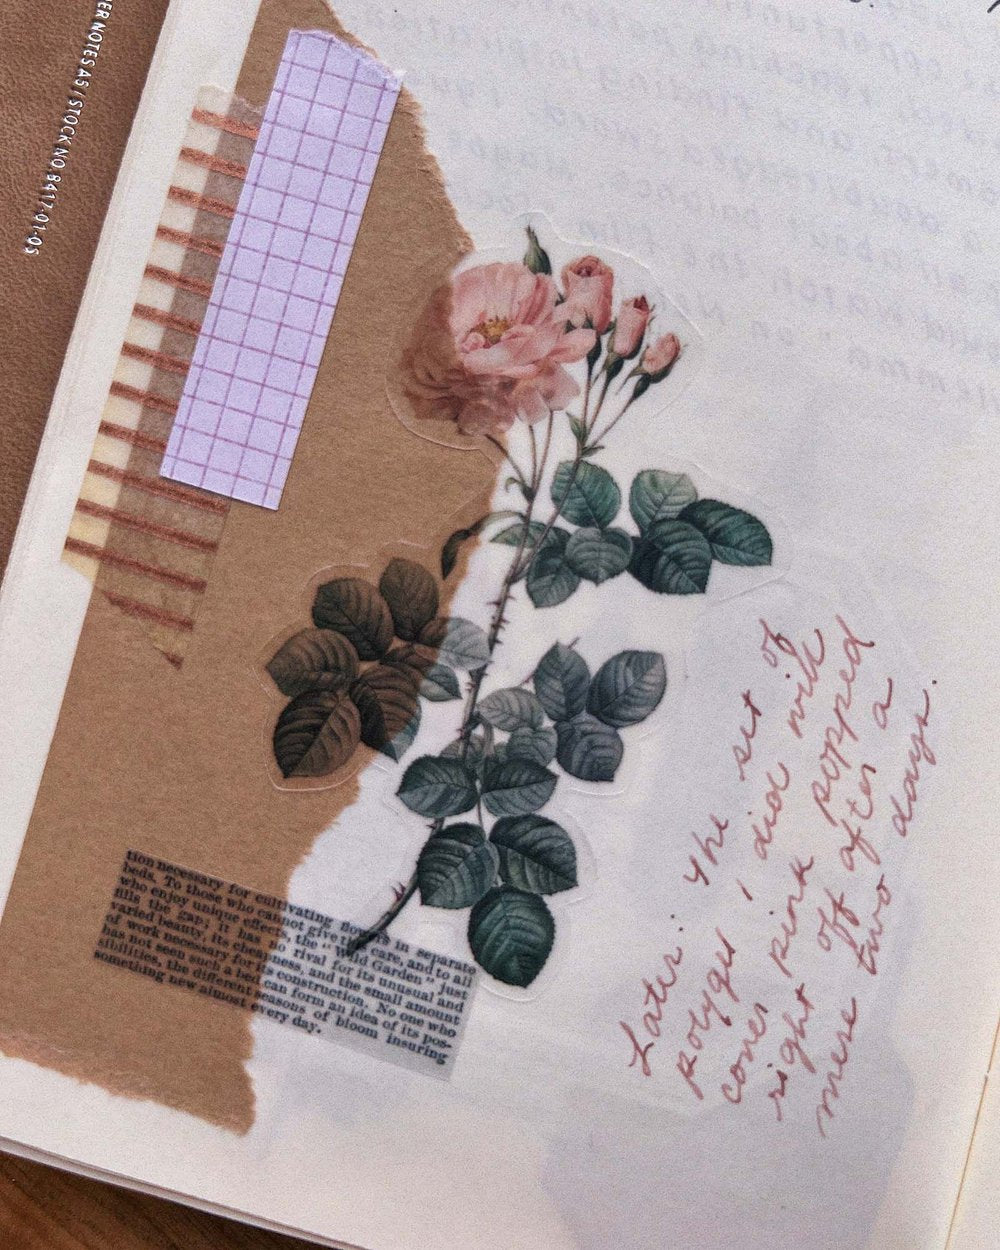 ER NOTES A5 | STOCK NO 8417-01-05
tion necessary for cultivating flowers in separate
beds. To those who cannot give the care, and to all
who enjoy unique effects, the "Wild Garden" just
fills the gap; it has no rival for its unusual and
varied beauty, its cheapness, and the small amount
of work necessary for its construction. No one who
has not seen such a bed can form an idea of its pos-
sibilities, the different seasons of bloom insuring
something new almost every day.
Later: The set of
polygel I did with
cones pink popped
right off after a
mere two days.